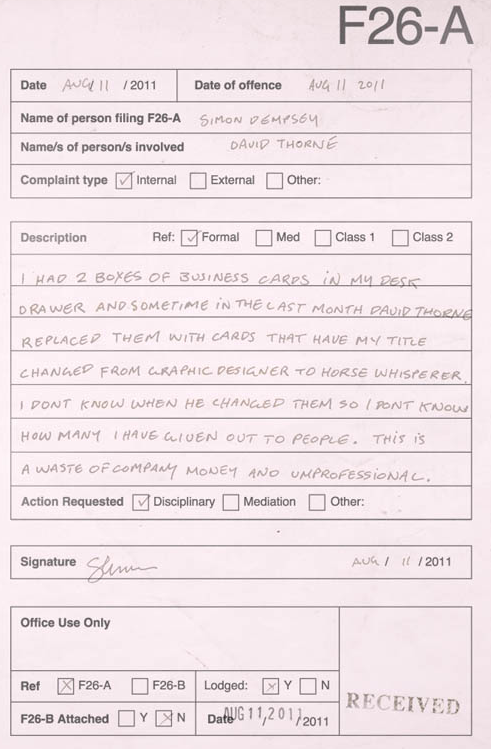 F26-A
Date AUG/ 11 / 2011 Date of offence AUG 11 2011
Name of person filing F26-A SIMON DEMPSEY
Name/s of person/s involved DAVID THORNE
Complaint type Internal External Other:
Description Ref: Formal Med Class 1 Class 2
I HAD 2 BOXES OF BUSINESS CARDS IN MY DESK
DRAWER AND SOMETIME IN THE LAST MONTH DAVID THORNE
REPLACED THEM WITH CARDS THAT HAVE MY TITLE
CHANGED FROM GRAPHIC DESIGNER TO HORSE WHISPERER.
I DONT KNOW WHEN HE CHANGED THEM SO I DONT KNOW
HOW MANY I HAVE GIVEN OUT TO PEOPLE. THIS IS
A WASTE OF COMPANY MONEY AND UNPROFESSIONAL.
Action Requested Disciplinary Mediation Other:
Signature AUG / 11 / 2011
Office Use Only
Ref F26-A F26-B Lodged: Y N
F26-B Attached Y N Date AUG 11, 2011 /2011
RECEIVED